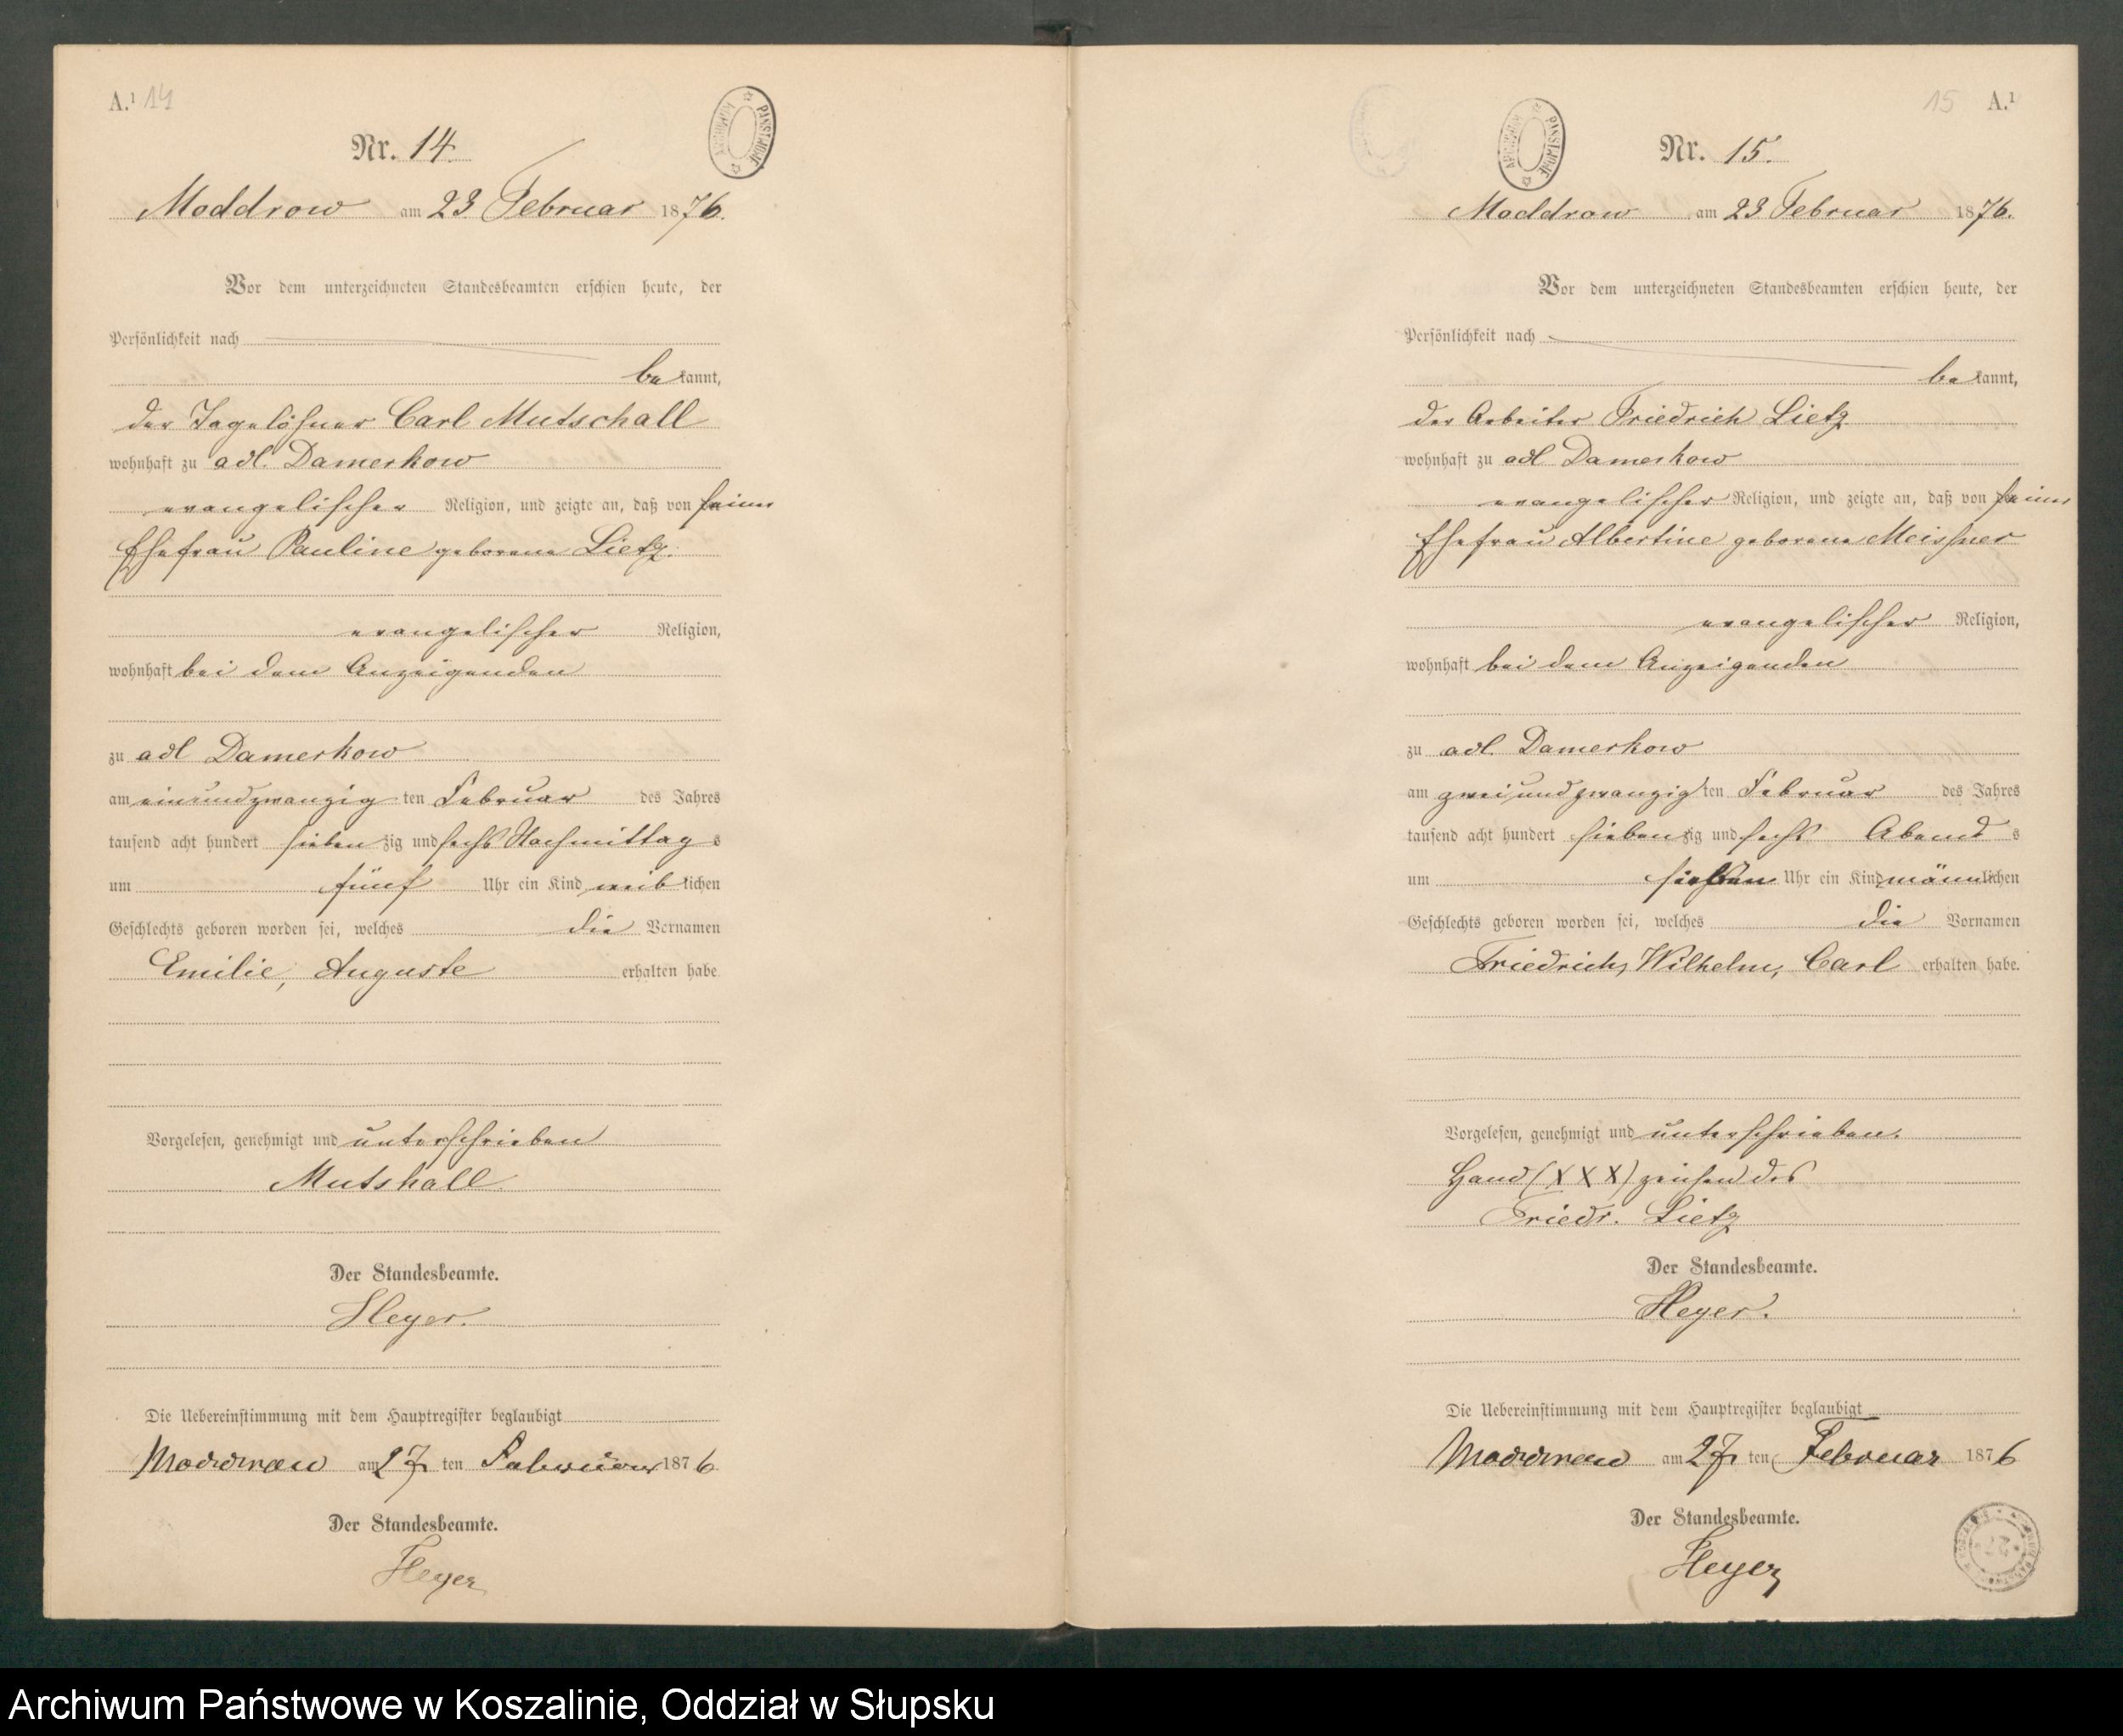 A.¹ 14
ARCHIWUM PAŃSTWOWE
Nr. 14.
Moddrow am 23 Februar 1876.
Vor dem unterzeichneten Standesbeamten erschien heute, der
Persönlichkeit nach
bekannt,
der Tagelöhner Carl Mutschall
wohnhaft zu adl. Damerkow
evangelischer Religion, und zeigte an, daß von seiner
Ehefrau Pauline geborene Lietz.
evangelischer Religion,
wohnhaft bei dem Anzeigenden
zu adl Damerkow
am einundzwanzig ten Februar des Jahres
tausend acht hundert siebenzig und sechs Nachmittags
um fünf Uhr ein Kind weiblichen
Geschlechts geboren worden sei, welches die Vornamen
Emilie, Auguste erhalten habe.
Vorgelesen, genehmigt und unterschrieben
Mutshall
Der Standesbeamte.
Heyer.
Die Uebereinstimmung mit dem Hauptregister beglaubigt
Moddrow am 27 ten Februar 1876
Der Standesbeamte.
Heyer
15 A.¹
ARCHIWUM PAŃSTWOWE
Nr. 15.
Moddrow am 23 Februar 1876.
Vor dem unterzeichneten Standesbeamten erschien heute, der
Persönlichkeit nach
bekannt,
der Arbeiter Friedrich Lietz
wohnhaft zu adl Damerkow
evangelischer Religion, und zeigte an, daß von seiner
Ehefrau Albertine geborene Meissner
evangelischer Religion,
wohnhaft bei dem Anzeigenden
zu adl. Damerkow
am zweiundzwanzig ten Februar des Jahres
tausend acht hundert siebenzig und sechs Abends
um sieben Uhr ein Kind männlichen
Geschlechts geboren worden sei, welches die Vornamen
Friedrich, Wilhelm, Carl erhalten habe.
Vorgelesen, genehmigt und unterschrieben.
Hand (X X X) zeichen des
Friedr. Lietz
Der Standesbeamte.
Heyer.
Die Uebereinstimmung mit dem Hauptregister beglaubigt
Moddrow am 27 ten Februar 1876
Der Standesbeamte.
Heyer
Archiwum Państwowe w Koszalinie, Oddział w Słupsku